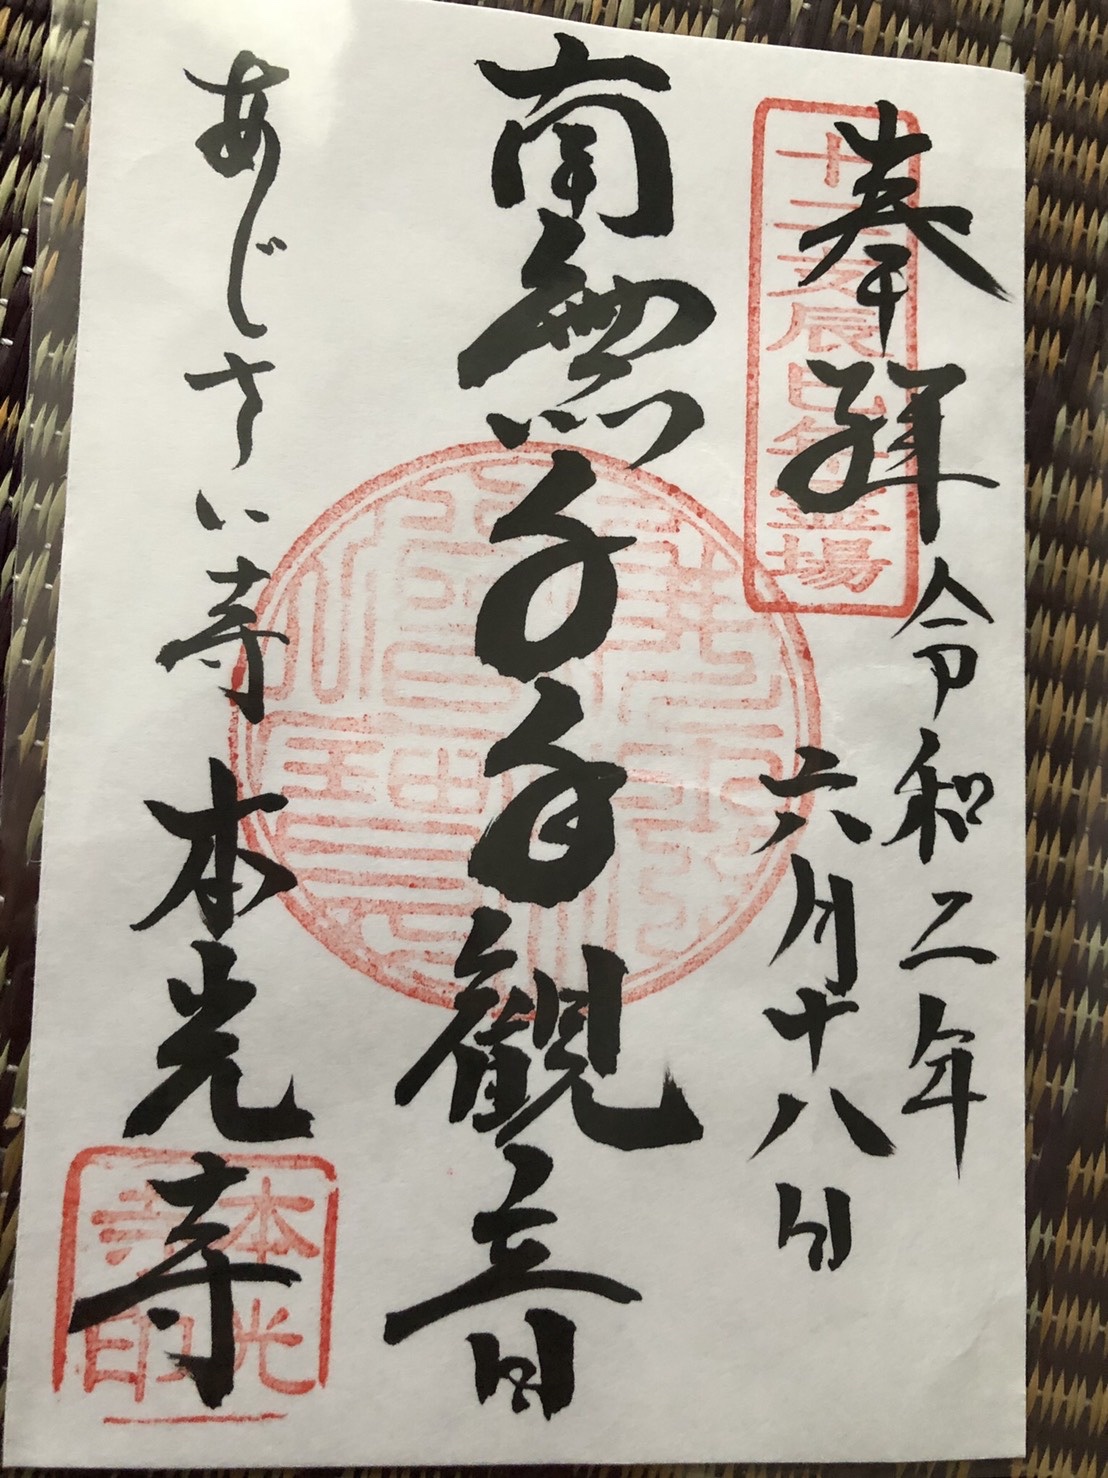 奉拝
令和二年
六月十八日
南無千手観音
あじさい寺
本光寺
十二支辰巳年霊場
本光寺印